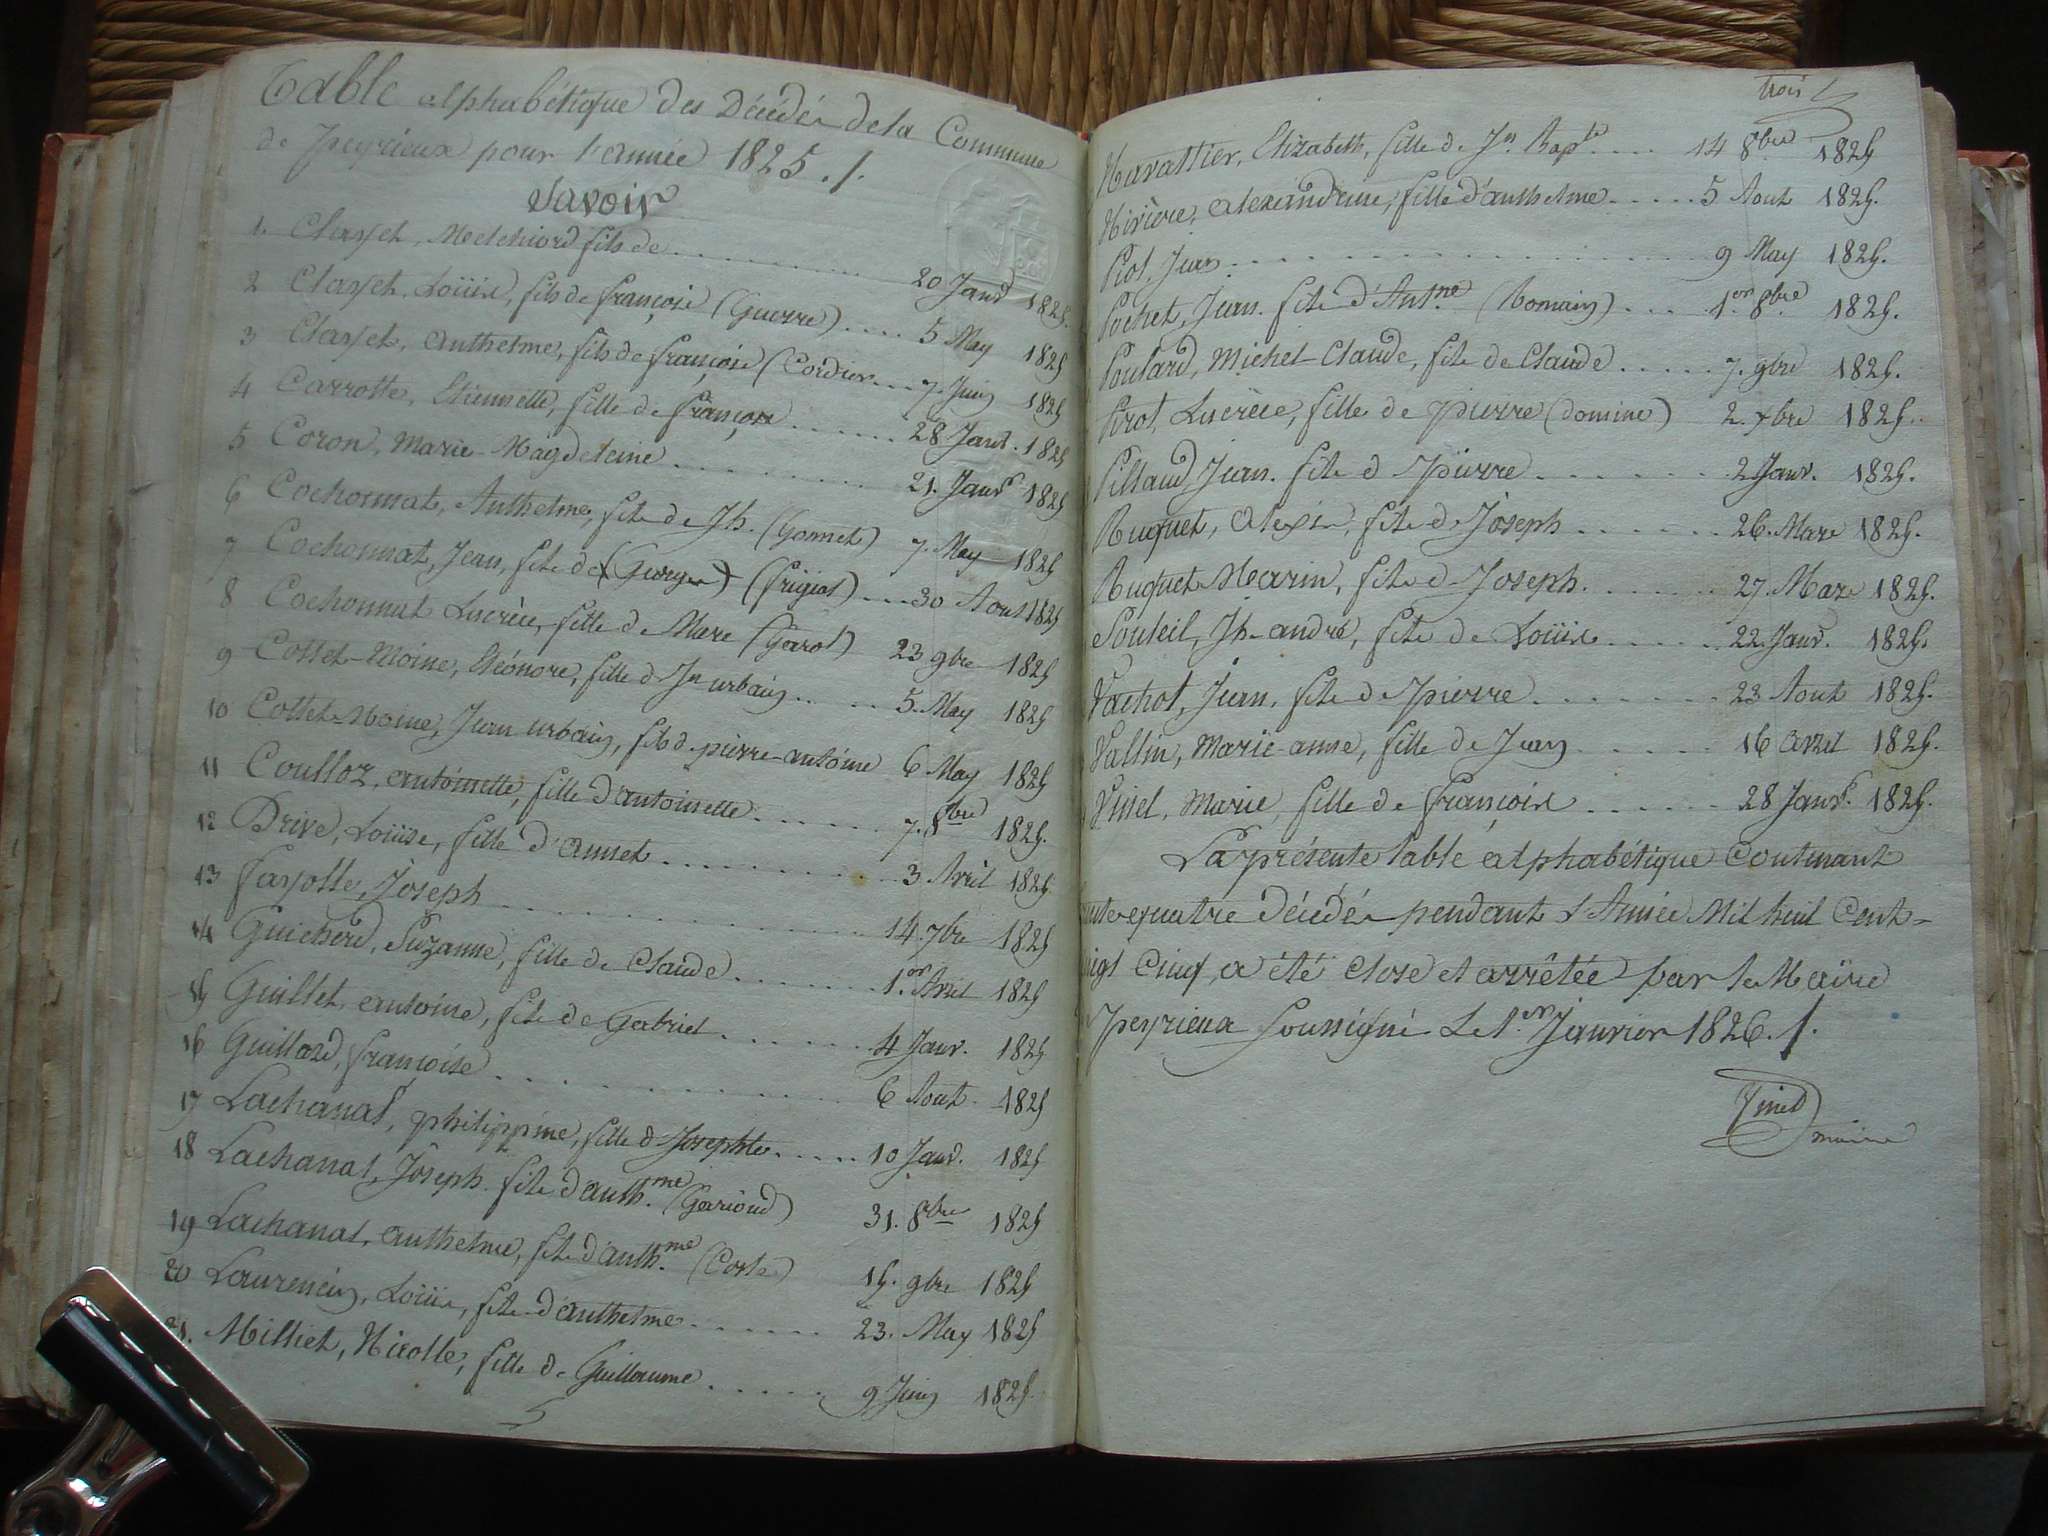 Table alphabétique des Décédés de la Commune
de Peyrieux pour l'année 1825 ./.
Savoir
1. Clayet, Melchiord fils de ........ 20 Janvr 1825.
2 Clayet, Loüis, fils de françois (Guerre) .... 5 May 1825
3 Clayet, anthelme, fils de françois (Cordier ... 7. Juin 1825
4 Carrotte, Etiennette, fille de françois ...... 28 Janv. 1825
5 Coron, Marie-Magdeleine ........ 21. Janvr 1825
6 Cochonnat, Anthelme, fils de Jh. (Gonnet) 7. May 1825
7 Cochonnat, Jean, fils de (George) (frigiot) ... 30 Aout 1825
8 Cochonnat Lucrèce, fille de Marc (Garot) 23 9bre 1825
9 Collet-Moine, Eléonore, fille de Jn urbain .... 5. May 1825
10 Collet-Moine, Jean urbain, fils de pierre-antoine 6 May 1825
11 Coulloz, antoinette, fille d'antoinette ...... 7. 8bre 1825.
12 Drive, Loüise, fille d'annet ........ 3 Avril 1825
13 fayolle, Joseph ........ 14. 7bre 1825
14 Guicherd, Suzanne, fille de Claude ....... 1.er Avril 1825
15 Guillet, antoine, fils de Gabriel ...... 4 Janv. 1825
16 Guillard, françoise ........ 6 Aout. 1825
17 Lachanal, philippine, fille de Josephte ..... 10 Janv. 1825
18 Lachanal, Joseph. fils d'anth.me (Garioud) 31. 8bre 1825
19 Lachanal, anthelme, fils d'anth.me (Coste) 15. 9bre 1825
20 Laurencin, Loüis, fils d'anthelme ...... 23. May 1825
21. Milliet, Nicolle, fille de Guillaume ...... 9 Juin 1825.
trois
Navattier, Elizabeth, fille de Jn Bapte .... 14 8bre 1825
Nivière, alexandrine, fille d'anthelme ..... 5 Aout 1825.
Piot, Jean ........ 9 May 1825.
Pochet, Jean. fils d'Ant.ne (Romain) .... 1.er 8bre 1825.
Poulard, Michel-Claude, fils de Claude ..... 7. 9bre 1825.
Pirot, Lucrèce, fille de pierre (domine) 2. xbre 1825.
Pillaud, Jean. fils de pierre ...... 2 Janv. 1825.
Ruquet, Alexis, fils de Joseph ...... 26. Mars 1825.
Ruquet Marin, fils de Joseph. ...... 27. Mars 1825.
Souleil, Jh-andré, fils de Loüis ..... 22. Janv. 1825.
Vachot, Jean, fils de pierre ....... 23 Aout 1825.
Vallin, Marie-anne, fille de Jean ...... 16 avril 1825.
Vinel, Marie, fille de françois ...... 28 Janvr. 1825.
La présente table alphabétique Contenant
quatre décédés pendant l'Année Mil huit Cent-
vingt Cinq, a été close et arrêtée par le Maire
Peyrieux soussigné Le 1.er Janvier 1826. /.
Maire